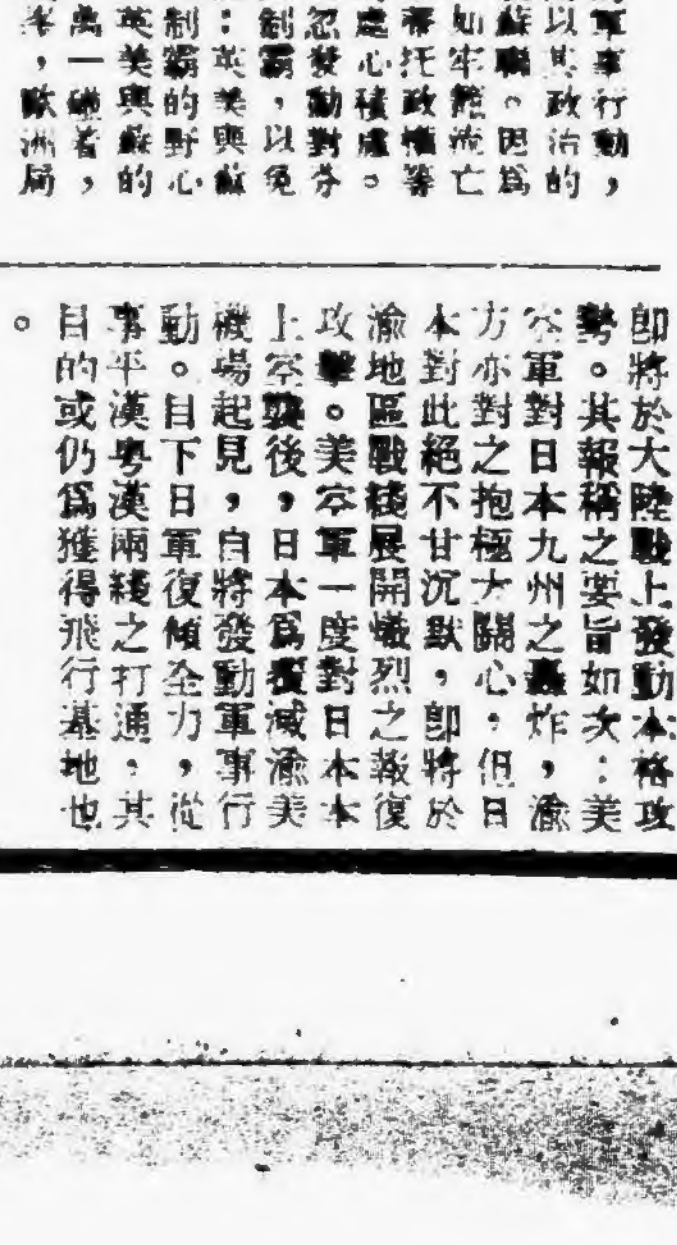 軍事行動，
以其政治的
蘇聯。因爲
如牢籠流亡
蒂托政權等
處心積慮。
忽發動對芬
制霸，以免
：英美與蘇
制霸的野心
英美與蘇的
萬一碰着，
，歐洲局
即將於大陸戰上發動本格攻
勢。其報稱之要旨如次：美
空軍對日本九州之轟炸，渝
方亦對之抱極大關心，但日
本對此絕不甘沉默，即將於
渝地區戰綫展開熾烈之報復
攻擊。美空軍一度對日本本
上空襲後，日本爲覆滅渝美
機場起見，自將發動軍事行
動。目下日軍復傾全力，從
事平漢粤漢兩綫之打通，其
目的或仍爲獲得飛行基地也
。